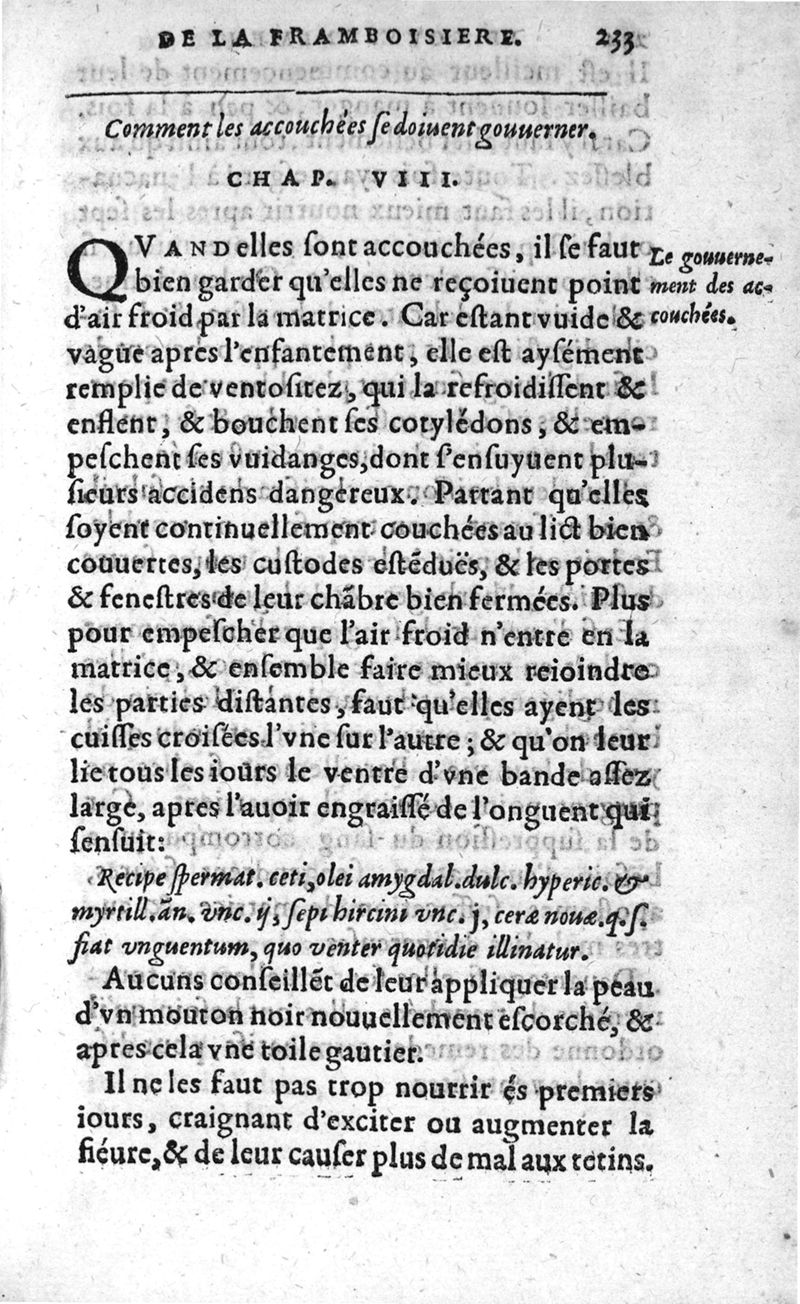 DE LA FRAMBOISIERE. 233
Comment les accouchées ſe doiuent gouuerner.
CHAP. VIII.
QVAND elles ſont accouchées, il ſe faut
bien garder qu'elles ne reçoiuent point
d'air froid par la matrice. Car eſtant vuide &
vague apres l'enfantement, elle eſt ayſément
remplie de ventoſitez, qui la refroidiſſent &
enflent, & bouchent ſes cotylédons, & em-
peſchent ſes vuidanges, dont ſ'enſuyuent plu-
ſieurs accidens dangereux. Partant qu'elles
ſoyent continuellement couchées au lict bien
couuertes, les cuſtodes eſtēduës, & les portes
& feneſtres de leur chābre bien fermées. Plus
pour empeſcher que l'air froid n'entre en la
matrice, & enſemble faire mieux reioindre
les parties diſtantes, faut qu'elles ayent les
cuiſſes croiſées l'vne ſur l'autre; & qu'on leur
lie tous les iours le ventre d'vne bande aſſez
large, apres l'auoir engraiſſé de l'onguent qui
ſenſuit:
Recipe ſpermat. ceti, olei amygdal. dulc. hyperic. &
myrtill. ān. vnc. ij, ſepi hircini vnc. j, ceræ nouæ. q. ſ.
fiat vnguentum, quo venter quotidie illinatur.
Aucuns conſeillēt de leur appliquer la peau
d'vn mouton noir nouuellement eſcorché, &
apres cela vne toile gautier.
Il ne les faut pas trop nourrir és premiers
iours, craignant d'exciter ou augmenter la
fiéure, & de leur cauſer plus de mal aux tetins.
Le gouuerne-
ment des ac-
couchées.